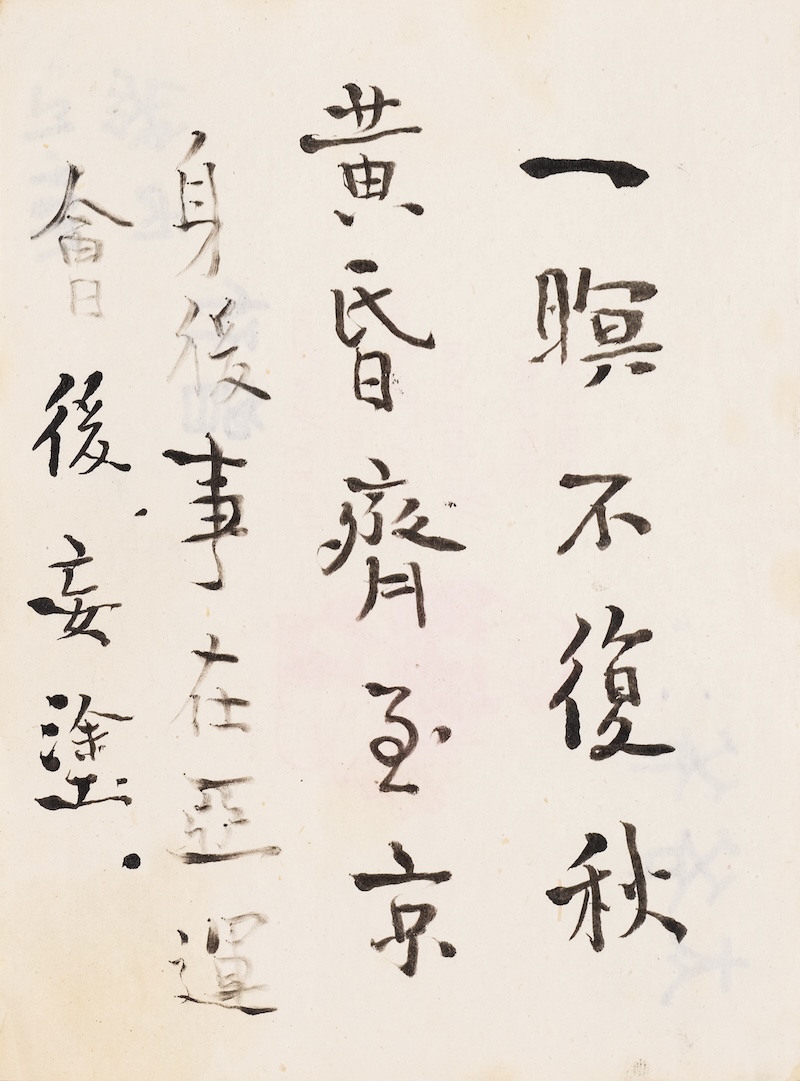 一瞑不復秋
黄昏齊至京
身後事在亞運
會後．妄塗．